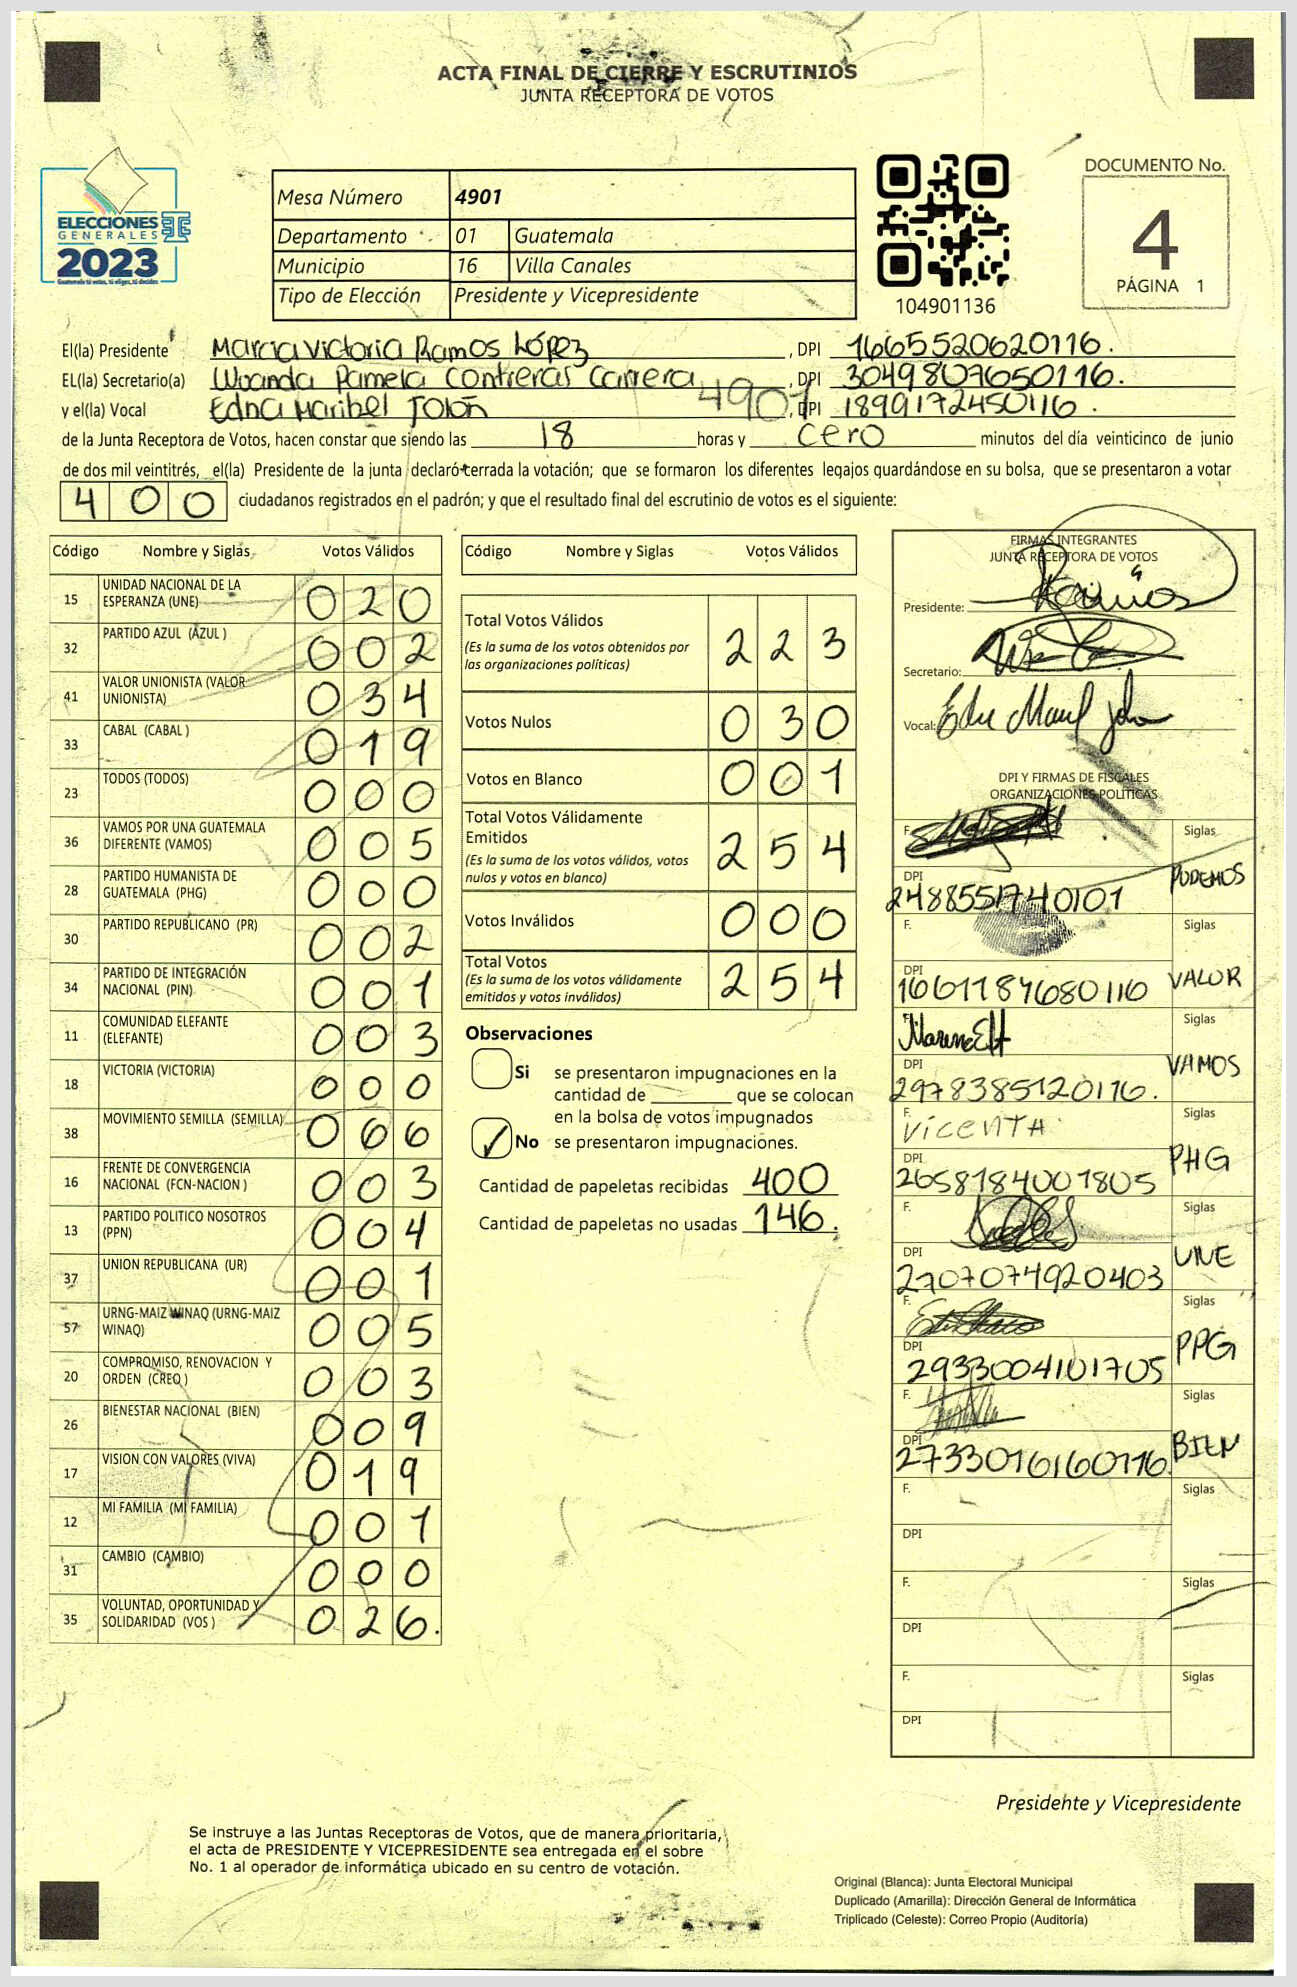 ACTA FINAL DE CIERRE Y ESCRUTINIOS
JUNTA RECEPTORA DE VOTOS
ELECCIONES
GENERALES
2023
Guatemala tú votas, tú eliges, tú decides
Mesa Número 4901
Departamento 01 Guatemala
Municipio 16 Villa Canales
Tipo de Elección Presidente y Vicepresidente
104901136
DOCUMENTO No.
4
PÁGINA 1
El(la) Presidente Marcia Victoria Ramos López, DPI 1665520620116.
EL(la) Secretario(a) Wuanda Pamela Contreras Carrera, DPI 3049807650116.
4901
y el(la) Vocal Edna Maribel Tolón, DPI 1899172450116.
de la Junta Receptora de Votos, hacen constar que siendo las 18 horas y cero minutos del día veinticinco de junio
de dos mil veintitrés, el(la) Presidente de la junta declaró cerrada la votación; que se formaron los diferentes legajos guardándose en su bolsa, que se presentaron a votar
400 ciudadanos registrados en el padrón; y que el resultado final del escrutinio de votos es el siguiente:
Código Nombre y Siglas Votos Válidos
15 UNIDAD NACIONAL DE LA ESPERANZA (UNE) 020
32 PARTIDO AZUL (AZUL ) 002
41 VALOR UNIONISTA (VALOR UNIONISTA) 034
33 CABAL (CABAL ) 019
23 TODOS (TODOS) 000
36 VAMOS POR UNA GUATEMALA DIFERENTE (VAMOS) 005
28 PARTIDO HUMANISTA DE GUATEMALA (PHG) 000
30 PARTIDO REPUBLICANO (PR) 002
34 PARTIDO DE INTEGRACIÓN NACIONAL (PIN) 001
11 COMUNIDAD ELEFANTE (ELEFANTE) 003
18 VICTORIA (VICTORIA) 000
38 MOVIMIENTO SEMILLA (SEMILLA) 066
16 FRENTE DE CONVERGENCIA NACIONAL (FCN-NACION ) 003
13 PARTIDO POLITICO NOSOTROS (PPN) 004
37 UNION REPUBLICANA (UR) 001
57 URNG-MAIZ WINAQ (URNG-MAIZ WINAQ) 005
20 COMPROMISO, RENOVACION Y ORDEN (CREO ) 003
26 BIENESTAR NACIONAL (BIEN) 009
17 VISION CON VALORES (VIVA) 019
12 MI FAMILIA (MI FAMILIA) 001
31 CAMBIO (CAMBIO) 000
35 VOLUNTAD, OPORTUNIDAD Y SOLIDARIDAD (VOS ) 026.
Código Nombre y Siglas Votos Válidos
Total Votos Válidos 223
(Es la suma de los votos obtenidos por
las organizaciones políticas)
Votos Nulos 030
Votos en Blanco 001
Total Votos Válidamente
Emitidos 254
(Es la suma de los votos válidos, votos
nulos y votos en blanco)
Votos Inválidos 000
Total Votos 254
(Es la suma de los votos válidamente
emitidos y votos inválidos)
Observaciones
Si se presentaron impugnaciones en la
cantidad de ________ que se colocan
en la bolsa de votos impugnados
No se presentaron impugnaciones.
Cantidad de papeletas recibidas 400
Cantidad de papeletas no usadas 146.
FIRMAS INTEGRANTES
JUNTA RECEPTORA DE VOTOS
Presidente: Ramos
Secretario:
Vocal:
DPI Y FIRMAS DE FISCALES
ORGANIZACIONES POLÍTICAS
F. Siglas
DPI 2488551740101 PODEMOS
F. Siglas
DPI 1661784680116 VALOR
Siglas
DPI 2978385120116. VAMOS
F. VicenTA Siglas
DPI 2658184001805 PHG
F. Siglas
DPI 2707074920403 UNE
F. Siglas
DPI 2933004101705 PPG
F. Siglas
DPI 2733016160116 BIEN
F. Siglas
DPI
F. Siglas
DPI
F. Siglas
DPI
Presidente y Vicepresidente
Se instruye a las Juntas Receptoras de Votos, que de manera prioritaria,
el acta de PRESIDENTE Y VICEPRESIDENTE sea entregada en el sobre
No. 1 al operador de informática ubicado en su centro de votación.
Original (Blanca): Junta Electoral Municipal
Duplicado (Amarilla): Dirección General de Informática
Triplicado (Celeste): Correo Propio (Auditoría)